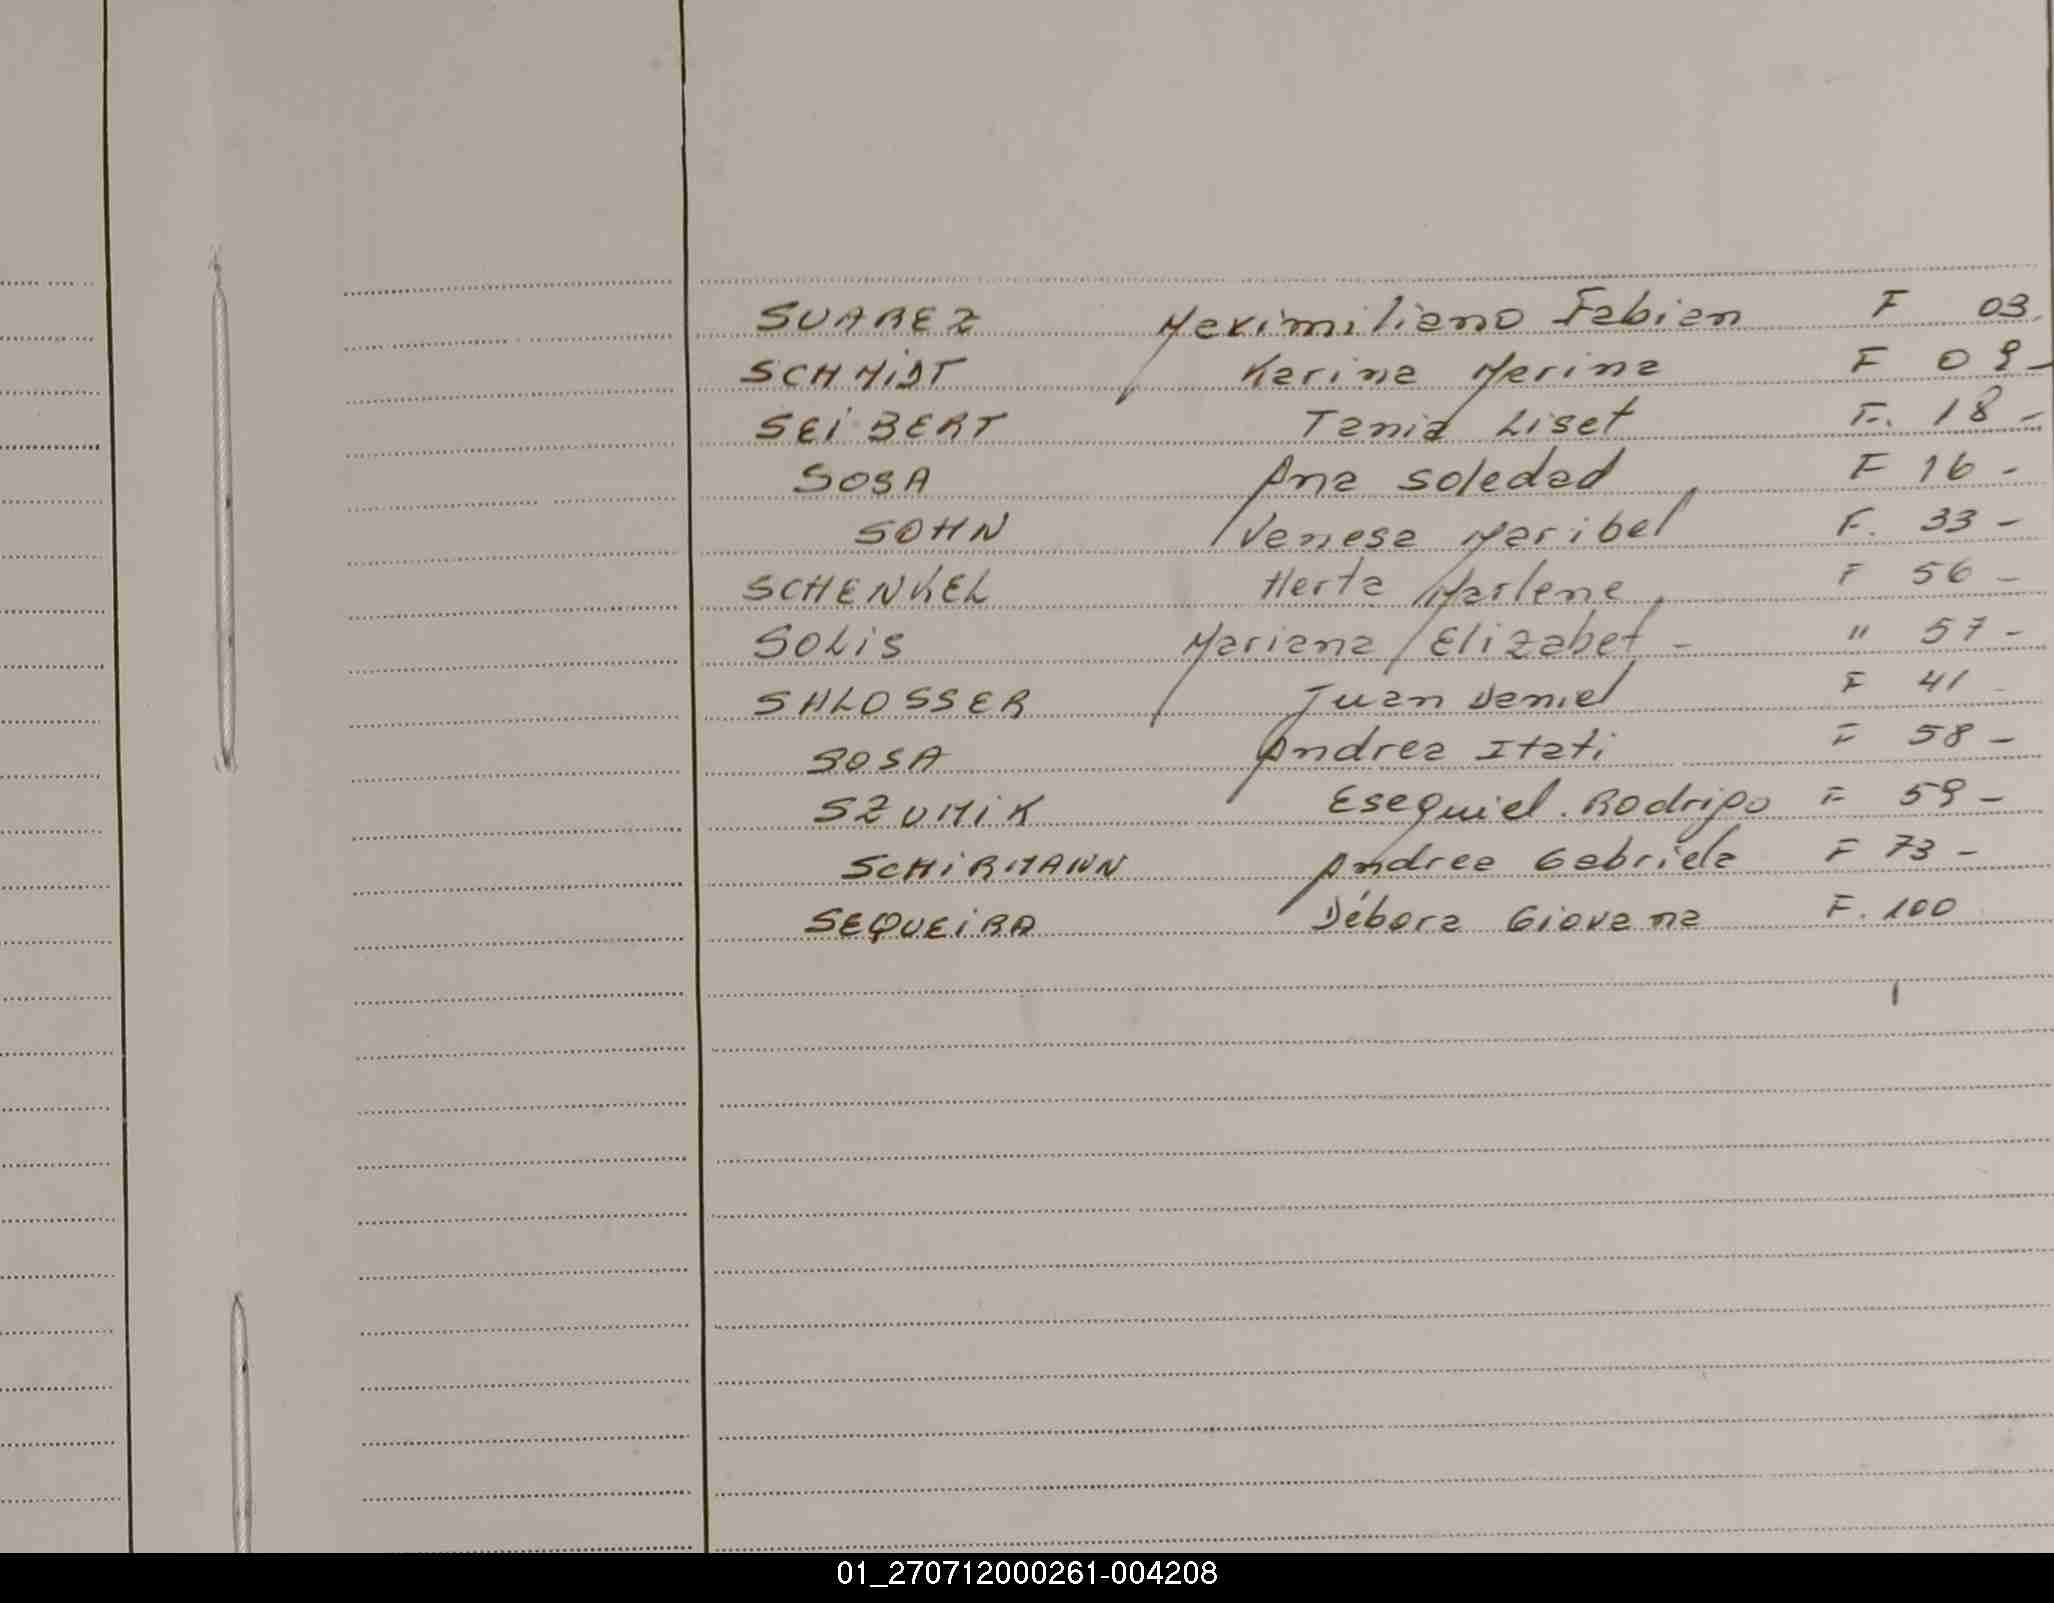 SUAREZ Maximiliano Fabian F 03.
SCHMiDT Karina Marina F 09-
SEiBERT Tania Liset F. 18-
SOSA Ana Soledad F 16-
SOHN Vanesa Maribel F. 33-
SCHENKEL Herta Marlene F 56-
SOLiS Mariana Elizabet - " 57-
SHLOSSER Juan Daniel F 41-
SOSA Andrea Itati F 58-
SZUMiK Esequiel. Rodrigo F 59-
SCHiRMANN Andrea Gabriela F 73-
SEQUEiRA Débora Giovana F. 100
01_270712000261-004208